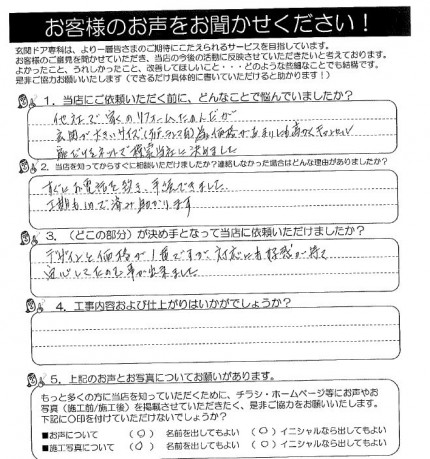 お客様のお声をお聞かせください！
玄関ドア専科は、より一層皆さまのご期待にこたえられるサービスを目指しています。
お客様のご意見を聞かせていただき、当店の今後の活動に反映させていただきたいと考えております。
よかったこと、うれしかったこと、改善してほしいこと・・どのような些細なことでも結構です。
是非ご協力お願いします（できるだけ具体的に書いていただけると助かります！）
1．当店にご依頼いただく前に、どんなことで悩んでいましたか？
他社で家のリフォームしたのだが
玄関が大きいサイズ 為 価格があまりにも高くキャンセル
決めました
2．当店を知ってからすぐに相談いただけましたか？連絡しなかった場合はどんな理由がありましたか？
すぐにお電話を致し、手続できました
工期も1日で済み助かります
3．（どこの部分）が決め手となって当店に依頼いただけましたか？
デザインと価格が1番ですが対応にも好感が持て
安心してたのむ事が出来ました
4．工事内容および仕上がりはいかがでしょうか？
5．上記のお声とお写真についてお願いがあります。
もっと多くの方に当店を知っていただくために、チラシ・ホームページ等にお声やお
写真（施工前/施工後）を掲載させていただきたく、是非ご協力をお願いいたします。
下記に〇印を付けていただけないでしょうか？
■お声について （〇） 名前を出してもよい （〇）イニシャルなら出してもよい
■施工写真について （〇） 名前を出してもよい （〇）イニシャルなら出してもよい